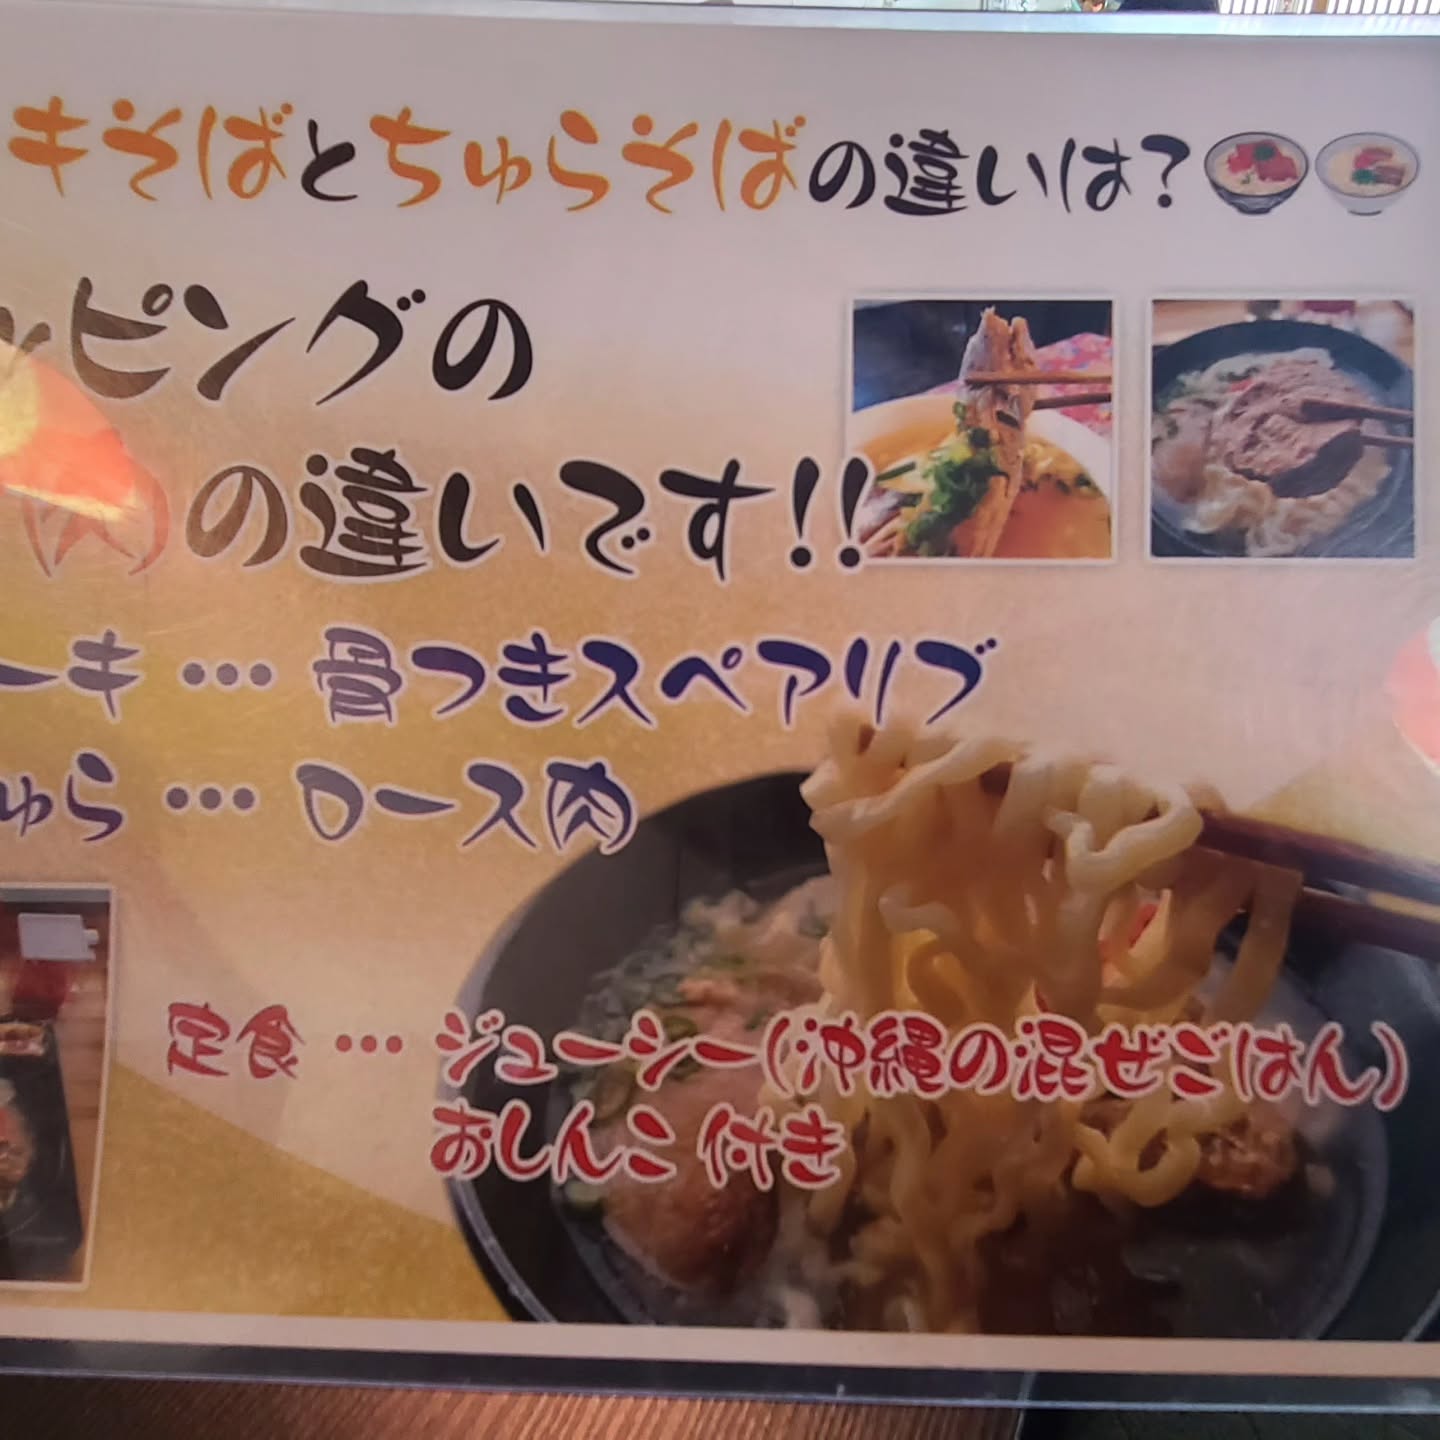 キそばとちゅらそばの違いは?
ッピングの
(肉)の違いです!!
ーキ … 骨つきスペアリブ
ゅら … ロース肉
定食 … ジューシー(沖縄の混ぜごはん)
おしんこ 付き